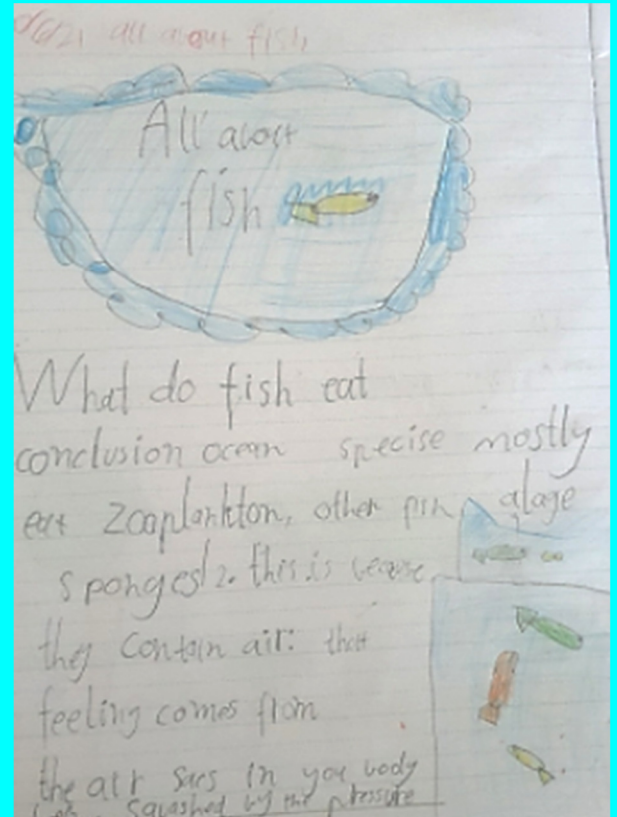 all about fish
All about
fish
What do fish eat
conclusion ocean specise mostly
eat zooplankton, other alage
sponges. this is
they contain air: that
feeling comes from
the air sacs in you body
squashed by the pressure